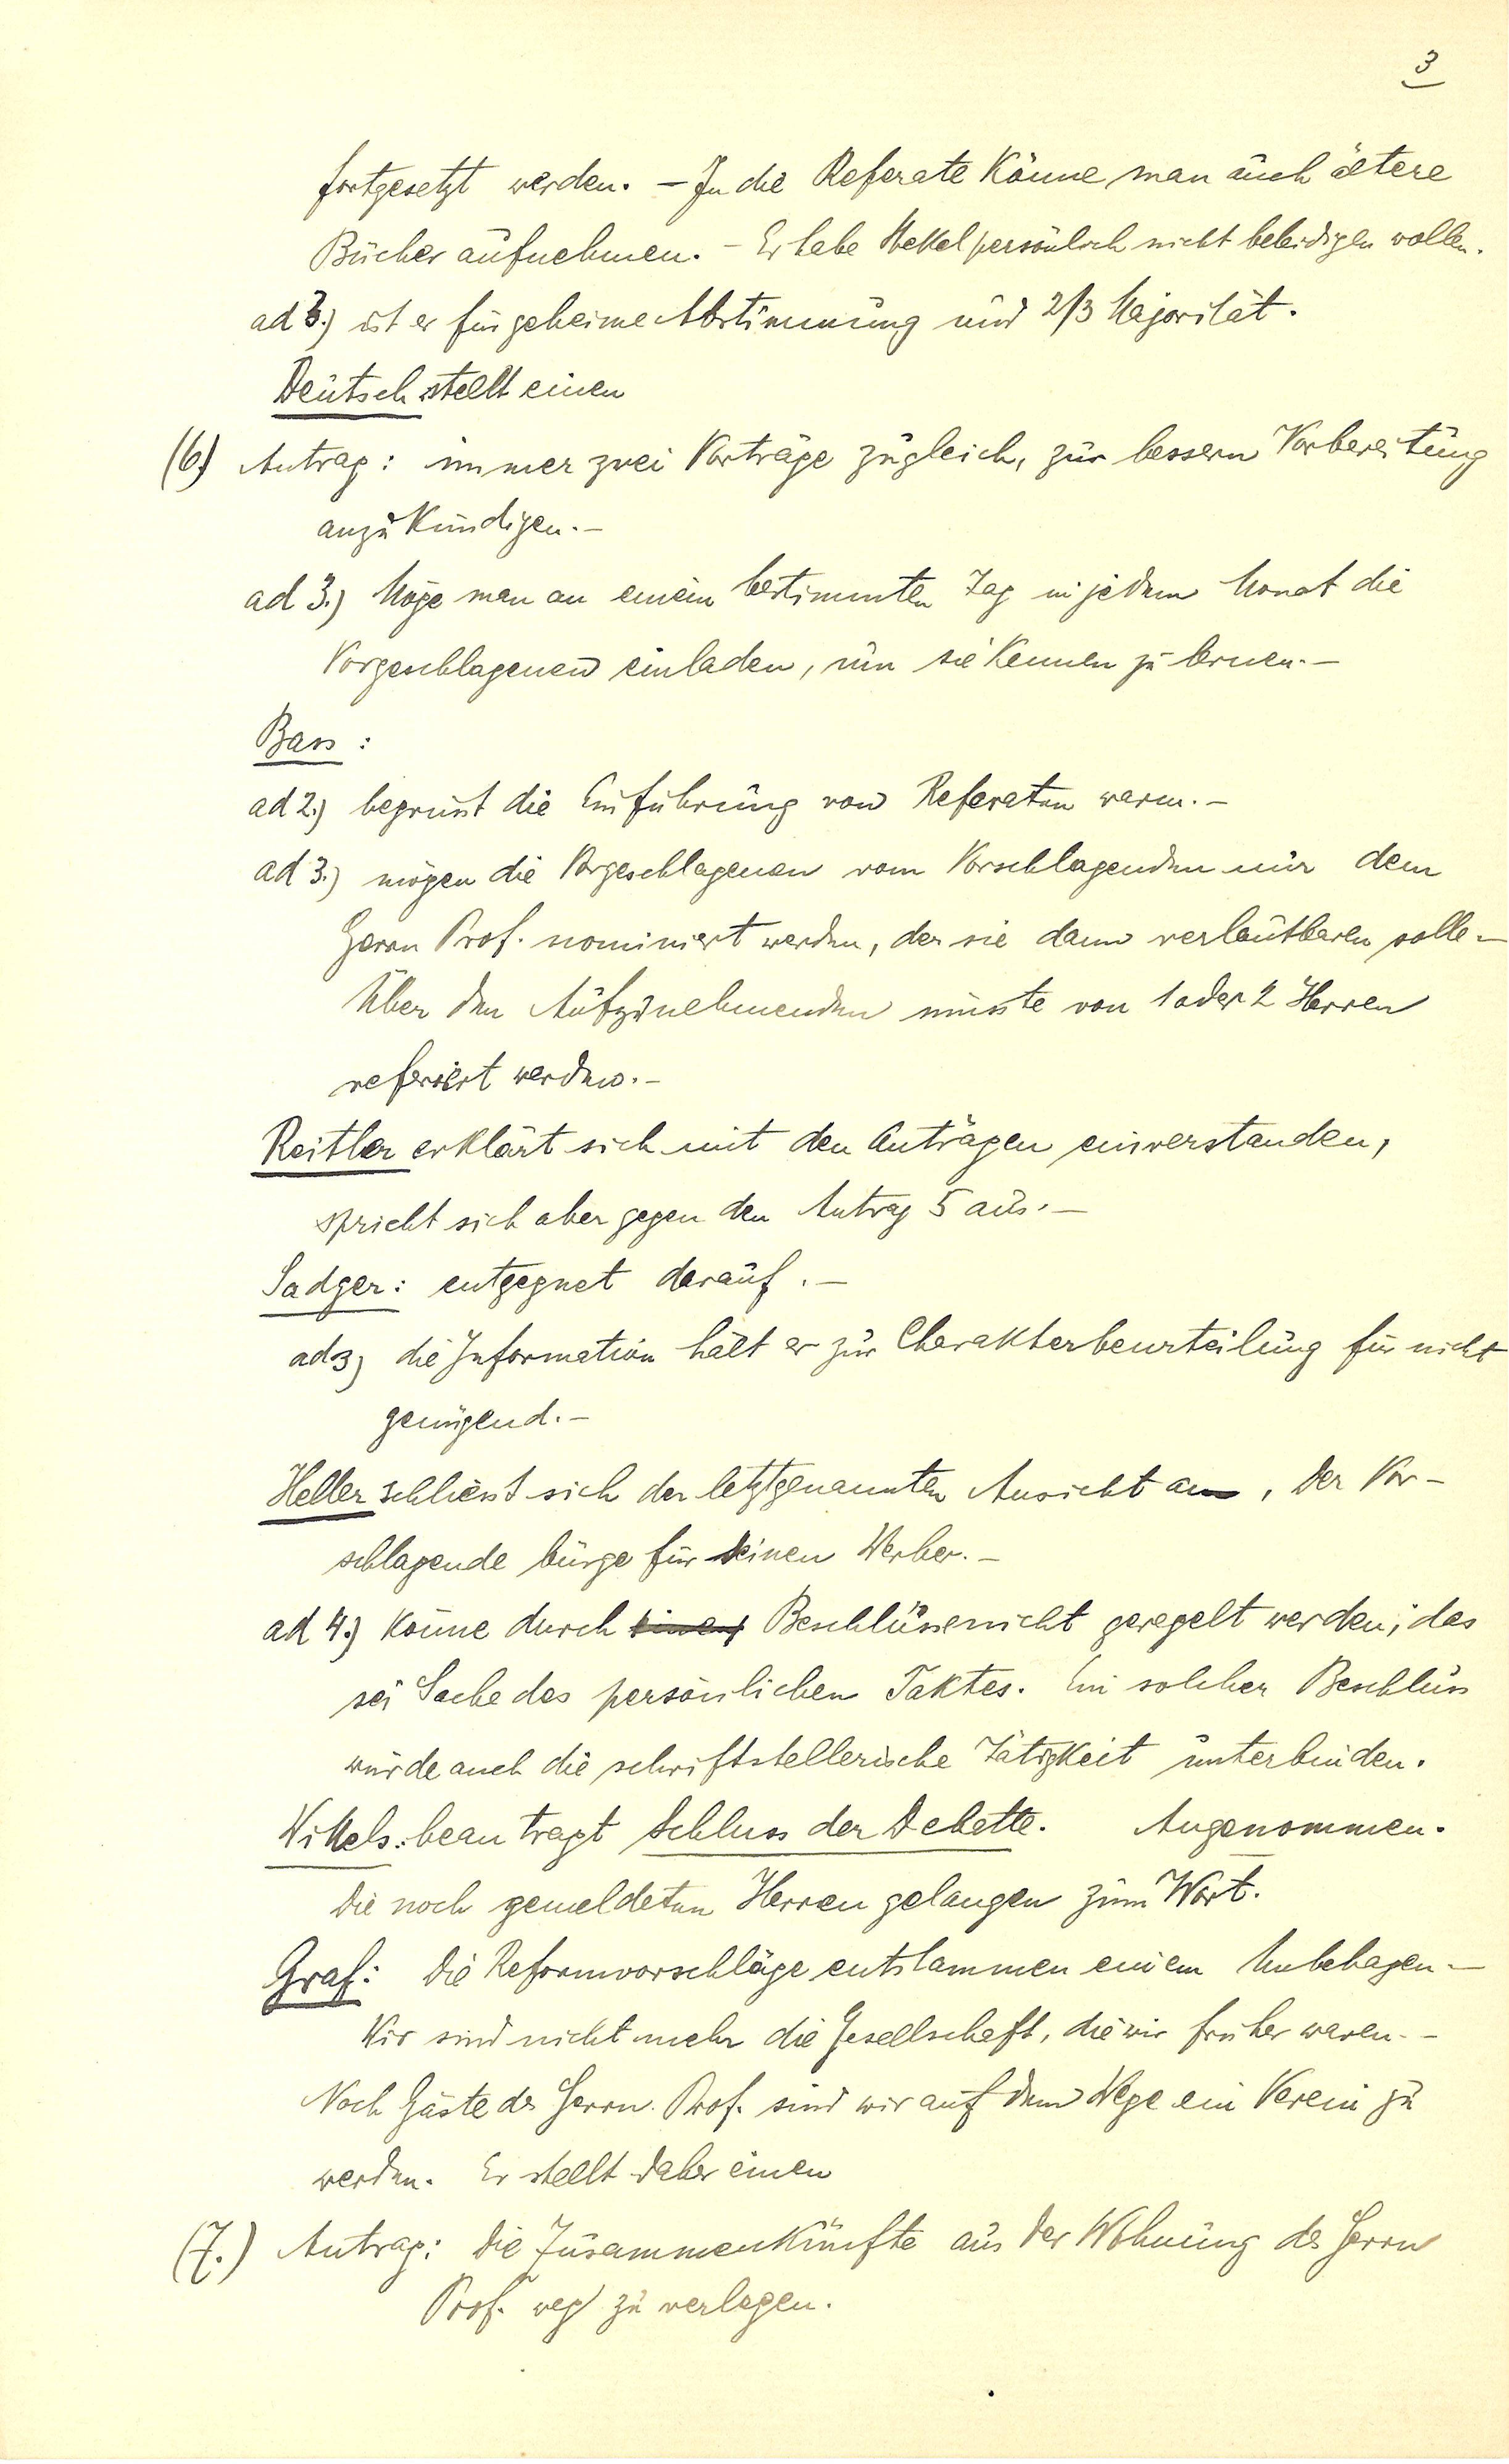 3
fortgesetzt werden. – In die Referate könne man auch ältere
Bücher aufnehmen. – Er habe Stekel persönlich nicht beleidigen wollen.
ad 3.) ist er für geheime Abstimmung und 2/3 Majorität.
Deutsch stellt einen
(6.) Antrag: immer zwei Vorträge zugleich, zur bessern Vorbereitung
anzukündigen. –
ad 3.) Möge man an einem bestimmten Tag in jedem Monat die
Vorgeschlagenen einladen, um sie kennen zu lernen. –
Bass:
ad 2.) begrüsst die Einführung von Referaten warm. –
ad 3.) mögen die Vorgeschlagenen vom Vorschlagenden nur dem
Herrn Prof. nominiert werden, der sie dann verlautbaren solle. –
Über den Aufzunehmenden müsste von 1 oder 2 Herren
referiert werden. –
Reitler erklärt sich mit den Anträgen einverstanden,
spricht sich aber gegen den Antrag 5 aus. –
Sadger: entgegnet darauf. –
ad 3) die Information hält er zur Charakterbeurteilung für nicht
genügend. –
Heller schliesst sich der letztgenannten Ansicht an, der Vor-
schlagende bürge für seinen Werber. –
ad 4.) könne durch einen Beschlüsse nicht geregelt werden; das
sei Sache des persönlichen Taktes. Ein solcher Beschluss
würde auch die schriftstellerische Tätigkeit unterbinden.
Wittels: beantragt Schluss der Debatte. Angenommen.
Die noch gemeldeten Herren gelangen zum Wort.
Graf: Die Reformvorschläge entstammen einem Unbehagen. –
Wir sind nicht mehr die Gesellschaft, die wir früher waren. –
Noch Gäste des Herrn Prof. sind wir auf dem Wege ein Verein zu
werden. Er stellt daher einen
(7.) Antrag: Die Zusammenkünfte aus der Wohnung des Herrn
Prof. weg zu verlegen.